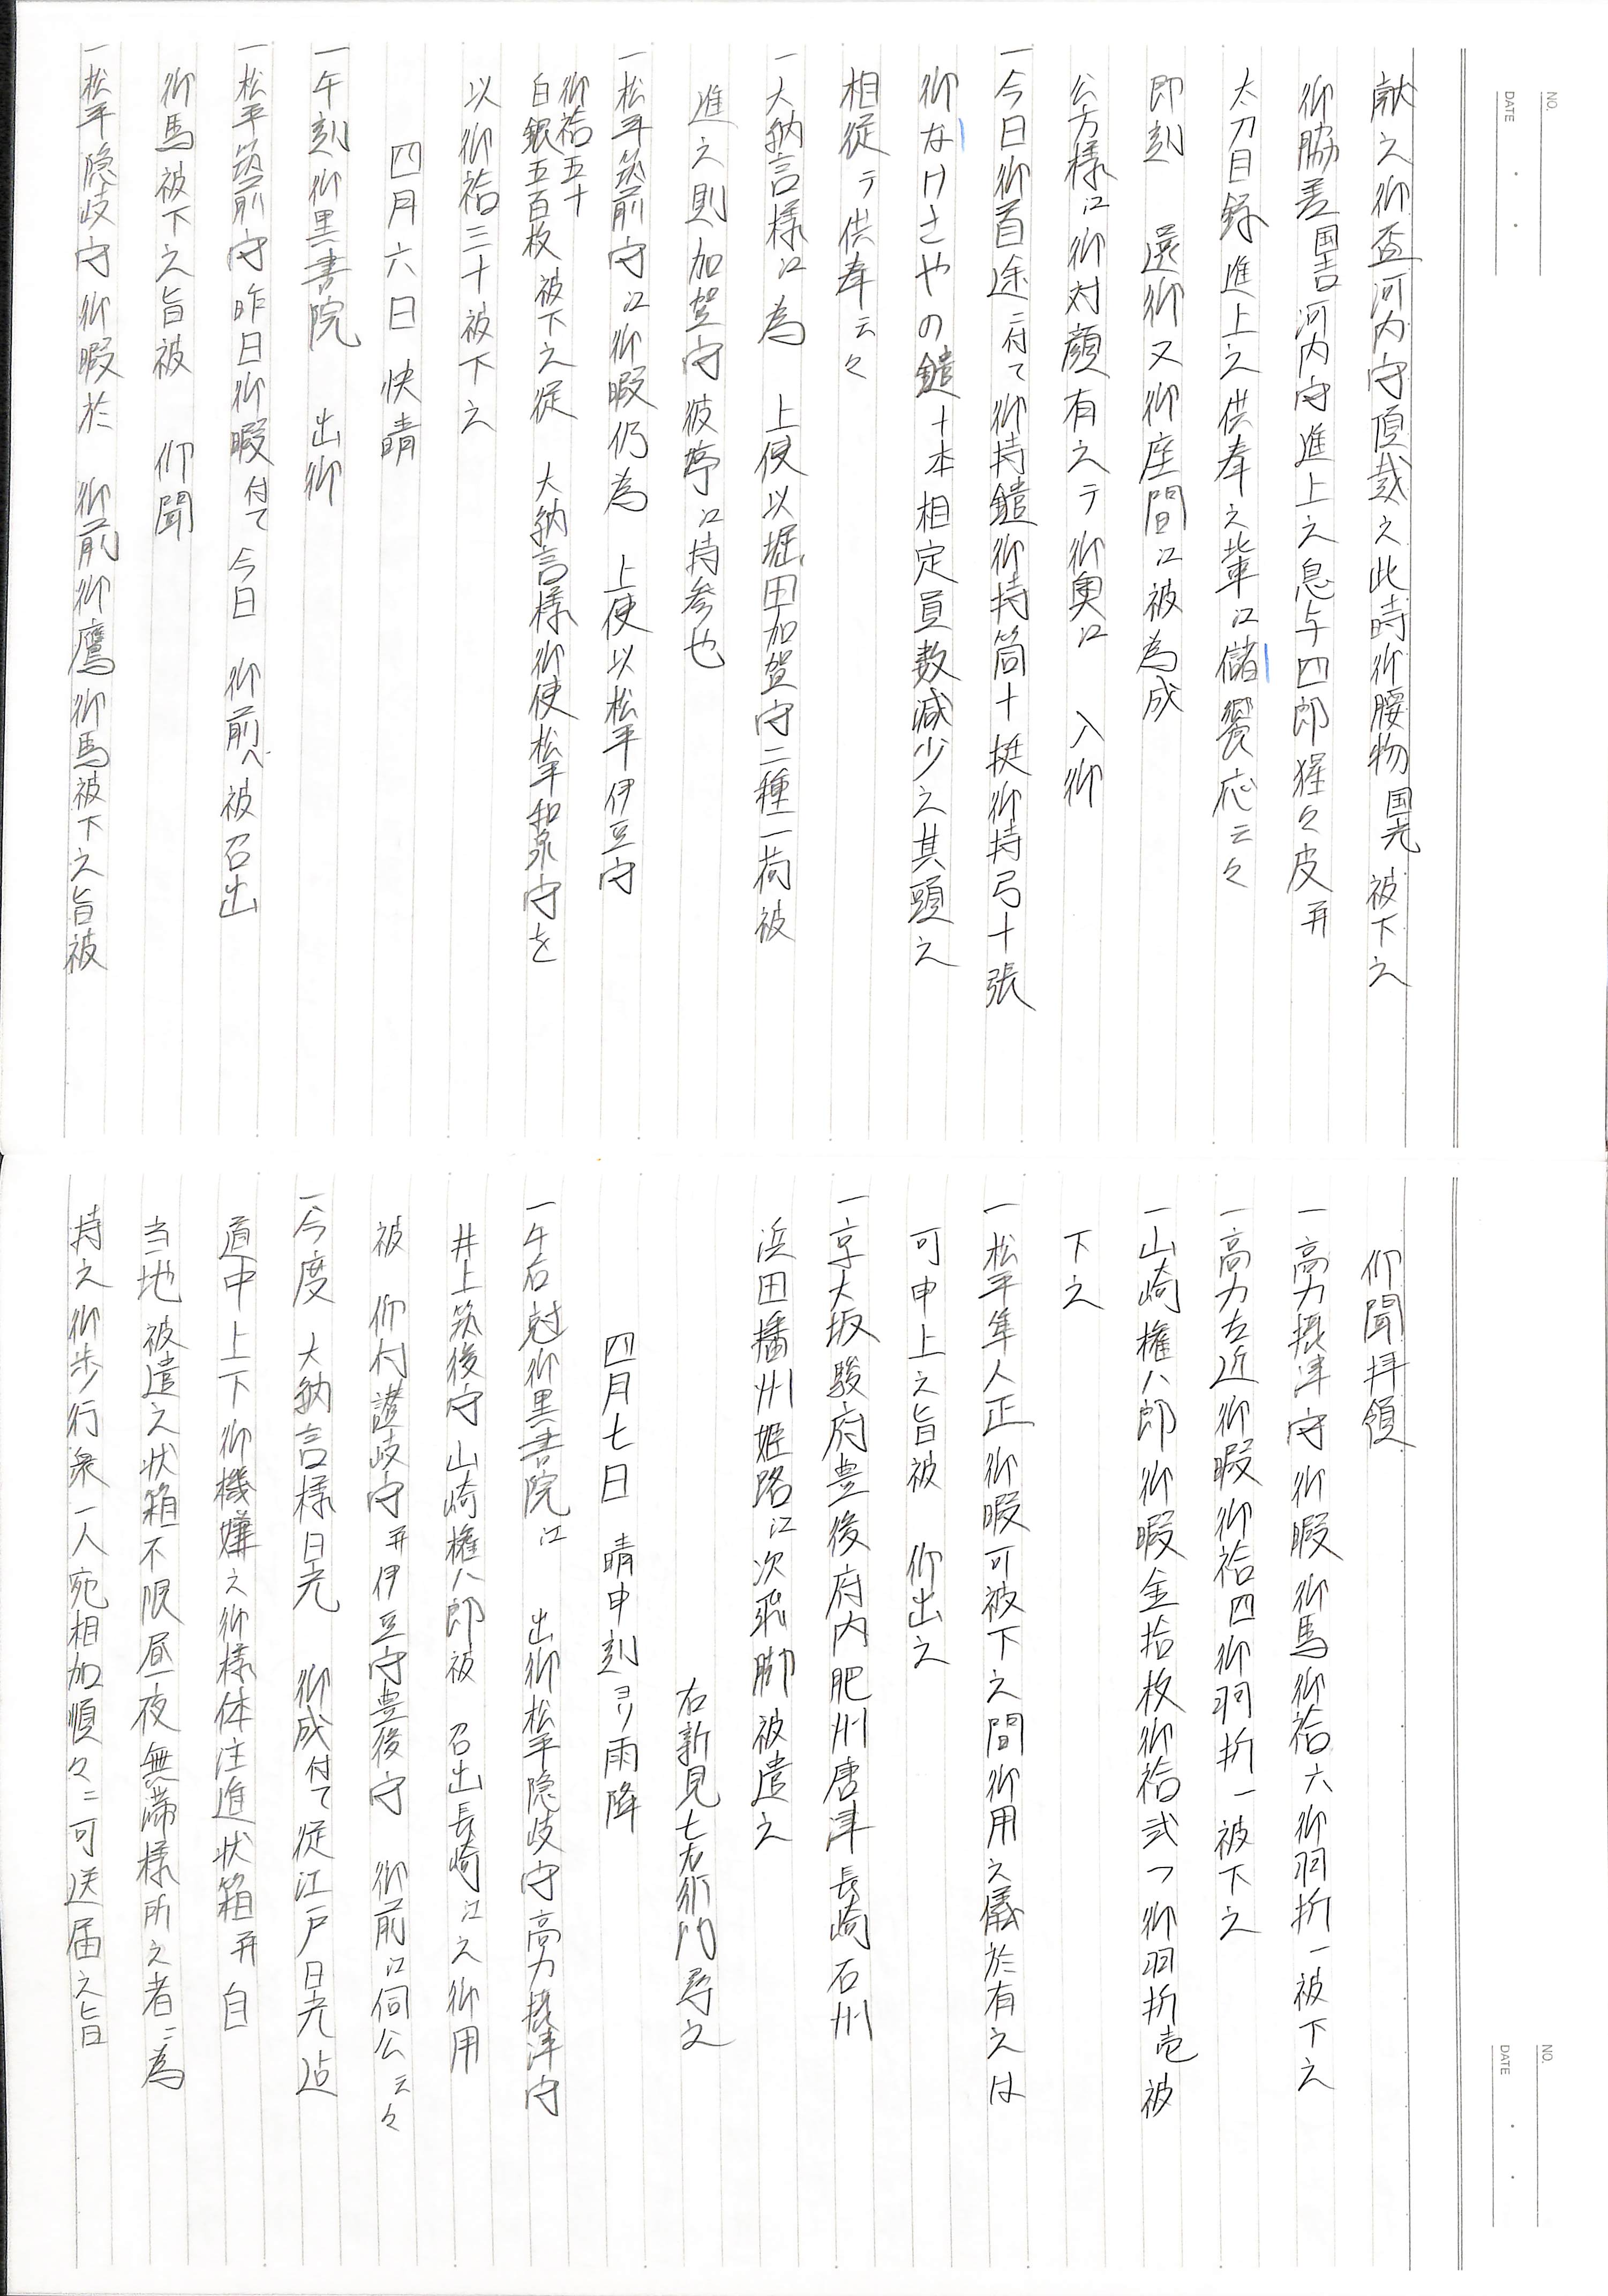 NO.
DATE
献之御盃河内守頂戴之此時御腰物国光被下之
御脇差国吉河内守進上之息与四郎猩々皮并
太刀目録進上之供奉之輩江儲饗応云々
即刻 還御又御座間江被為成
公方様江御対顔有之テ御奥江 入御
一今日御首途ニ付て御持鑓御持筒十挺御持弓十張
御なけさやの鑓十本相定員数減少之其頭之
相従テ供奉云々
一大納言様江為 上使以堀田加賀守二種一荷被
進之則加賀守彼亭江持参也
一松平筑前守江御暇仍為 上使以松平伊豆守
御袷五十
白銀五百枚 被下之従 大納言様御使松平和泉守を
以御袷三十被下之
四月六日 快晴
一午刻御黒書院 出御
一松平筑前守昨日御暇付て今日 御前へ被召出
御馬被下之旨被 仰聞
一松平隠岐守御暇於 御前御鷹御馬被下之旨被
NO.
DATE
仰聞拝領
一高力摂津守御暇御馬御袷六御羽折一被下之
一高力左近御暇御袷四御羽折一被下之
一山崎権八郎御暇金拾枚御袷弐つ御羽折壱被
下之
一松平隼人正御暇可被下之間御用之儀於有之は
可申上之旨被 仰出之
一京大坂駿府豊後府内肥州唐津長崎石州
浜田播州姫路江次飛脚被遣之
右新見七右衛門尋之
四月七日 晴申刻ヨリ雨降
一午后尅御黒書院江 出御松平隠岐守高力摂津守
井上筑後守山崎権八郎被 召出長崎江之御用
被 仰付讃岐守并伊豆守豊後守 御前江伺公云々
一今度 大納言様日光 御成付て従江戸日光迄
道中上下御機嫌之御様体注進状箱并自
当地被遣之状箱不限昼夜無滞様所之者ニ為
持之御歩行衆一人宛相加順々ニ可送届之旨